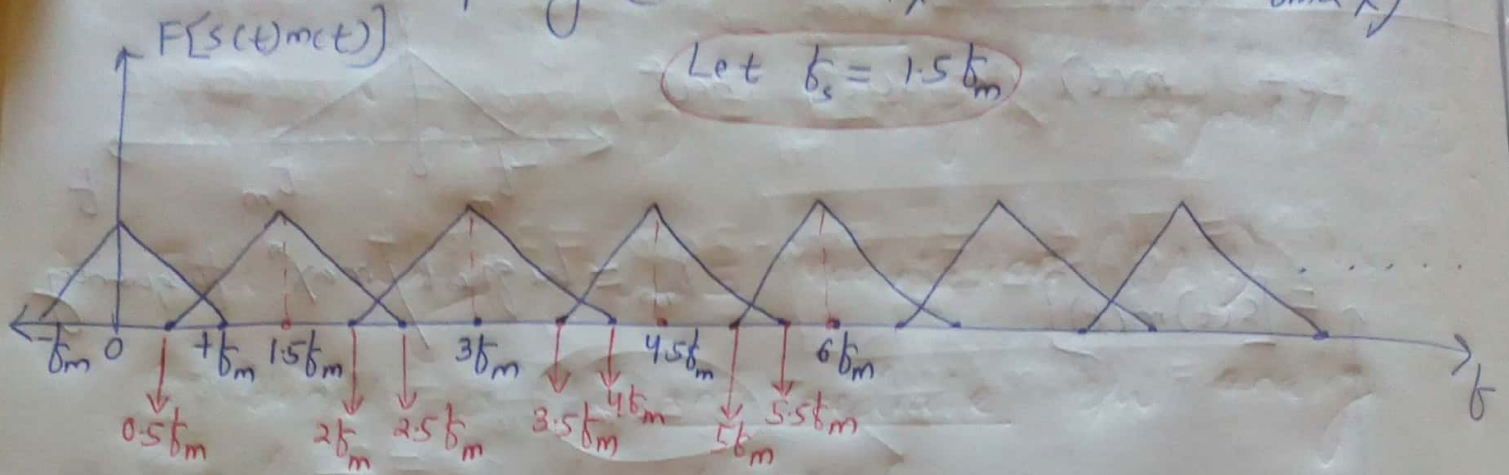 F[s(t)m(t)]
Let fs = 1.5fm
-fm 0 +fm 1.5fm 3fm 4.5fm 6fm
f
0.5fm 2fm 2.5fm 3.5fm 4fm 5fm 5.5fm